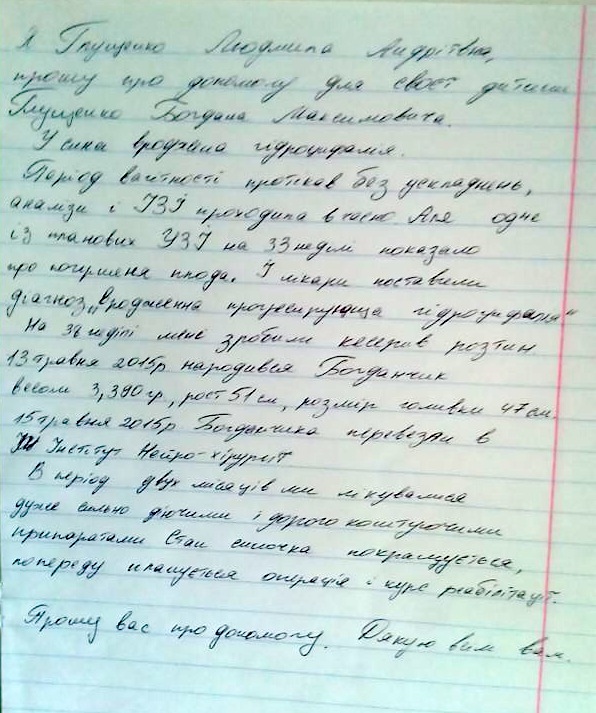 Я Глущенко Людмила Андріївна,
прошу про допомогу для своєї дитини
Глущенко Богдана Максимовича.
У сина вроджена гідроцифалія.
Період вагітності протікав без ускладнень,
аналізи і УЗІ проходила вчасно. Але одне
із планових УЗІ на 33 неделі показало
про погіршена плода. І лікари поставили
діагноз „вродженна прогресирующа гідроцифалія."
На 38 неділі мені зробили кесерив розтин
13 травня 2015р народився Богданчик
весом 3,390 гр, рост 51 см, розмір голивки 47 см.
15 травня 2015р Богданчика перевезли в
Інститут Нейро-хірургії
В період двух місяців ми лікувалися
дуже сильно діючими і дорого коштуючими
припаратами Стан синочка покращується,
попереду планується операція і курс реабілітації.
Прошу вас про допомогу. Дякую вам.